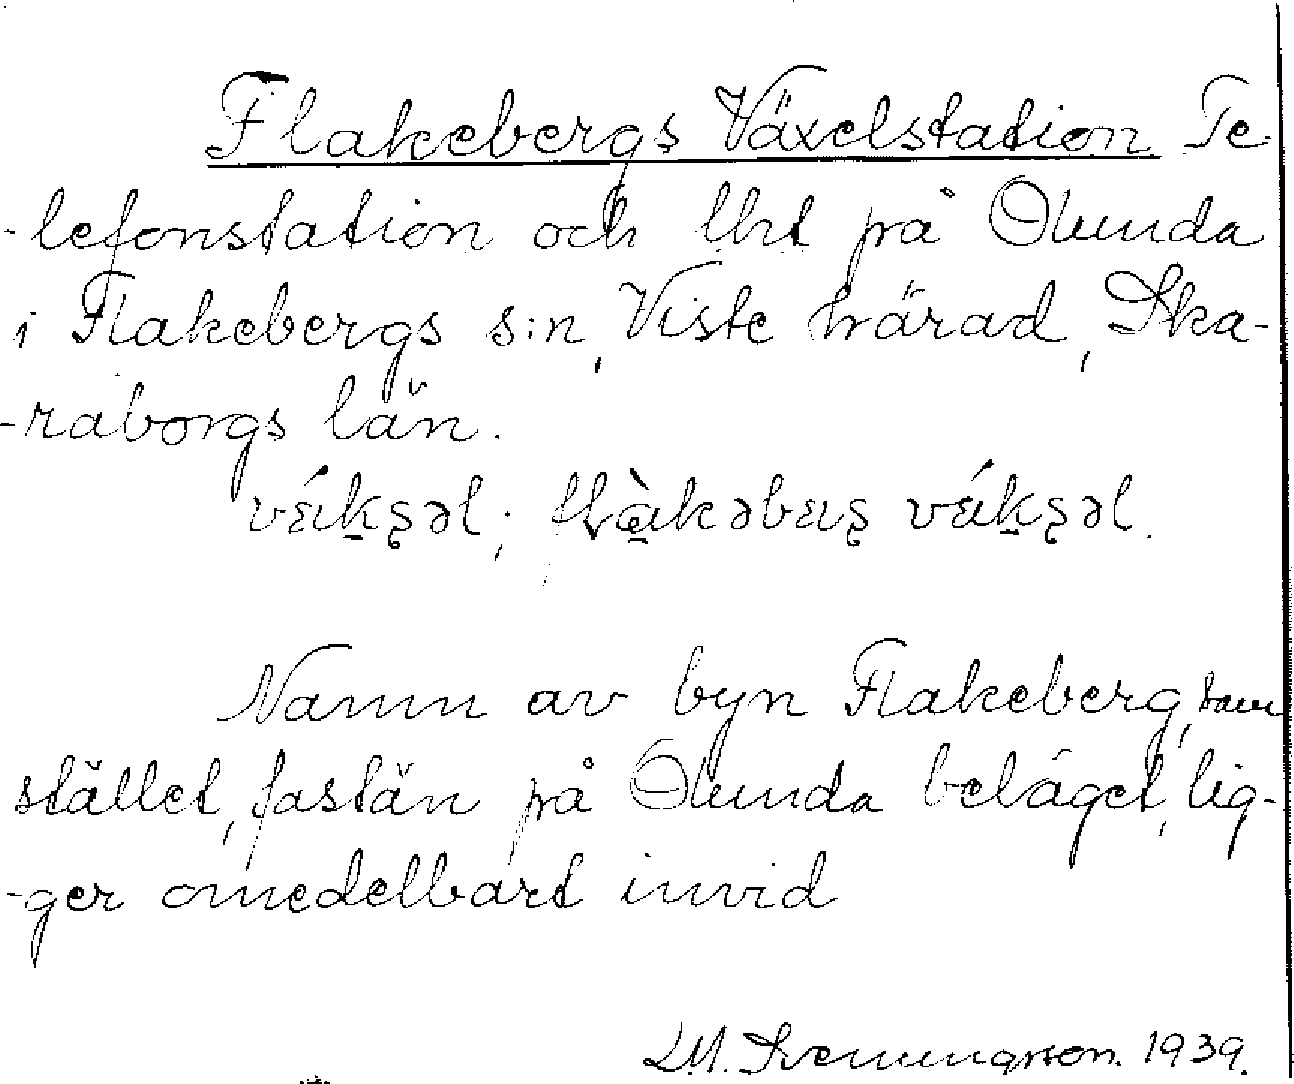 Flakebergs Växelstation Te-
-lefonstation och lht på Ölunda
i Flakebergs s:n, Viste härad, Ska-
-raborgs län.
vákşəl; flàkəbæş vákşəl.
Namn av byn Flakeberg, som
stället, fastän på Ölunda beläget, lig-
-ger omedelbart invid
L.M. Svenungsson. 1939.